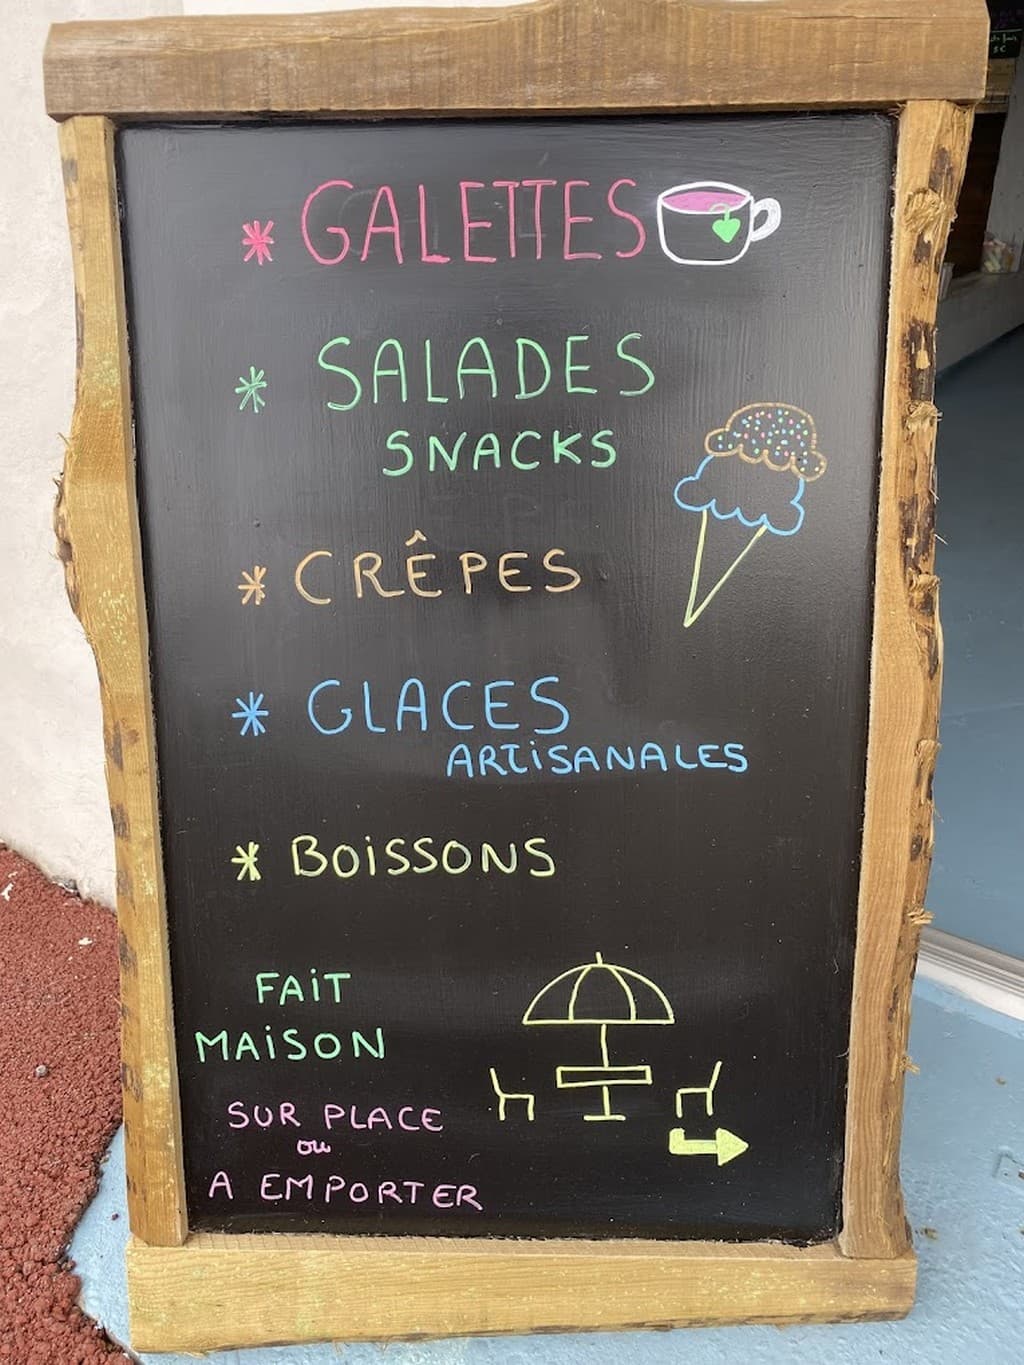 * GALETTES
* SALADES
SNACKS
* CRÊPES
* GLACES
ARTiSANALES
* BOiSSONS
FAiT
MAiSON
SUR PLACE
ou
A EMPORTER